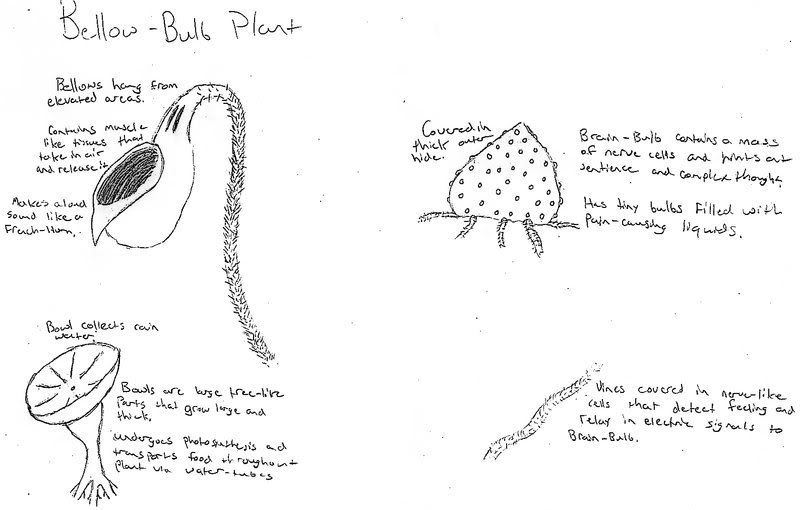 Bellow-Bulb Plant
Bellows hang from
elevated areas.
Contains muscle
like tissues that
take in air
and release it.
Makes a loud
sound like a
French-Horn.
Covered in
thick outer
hide.
Brain-Bulb contains a mass
of nerve cells and hints at
sentience and complex thought.
Has tiny bulbs filled with
Pain-causing liquids.
Bowl collects rain
water.
Bowls are large tree-like
Parts that grow large and
thick.
undergoes photosythesis and
transports food throughout
plant via water-tubes
Vines covered in nerve-like
cells that detect feeling and
relay in electric signals to
Brain-Bulb.